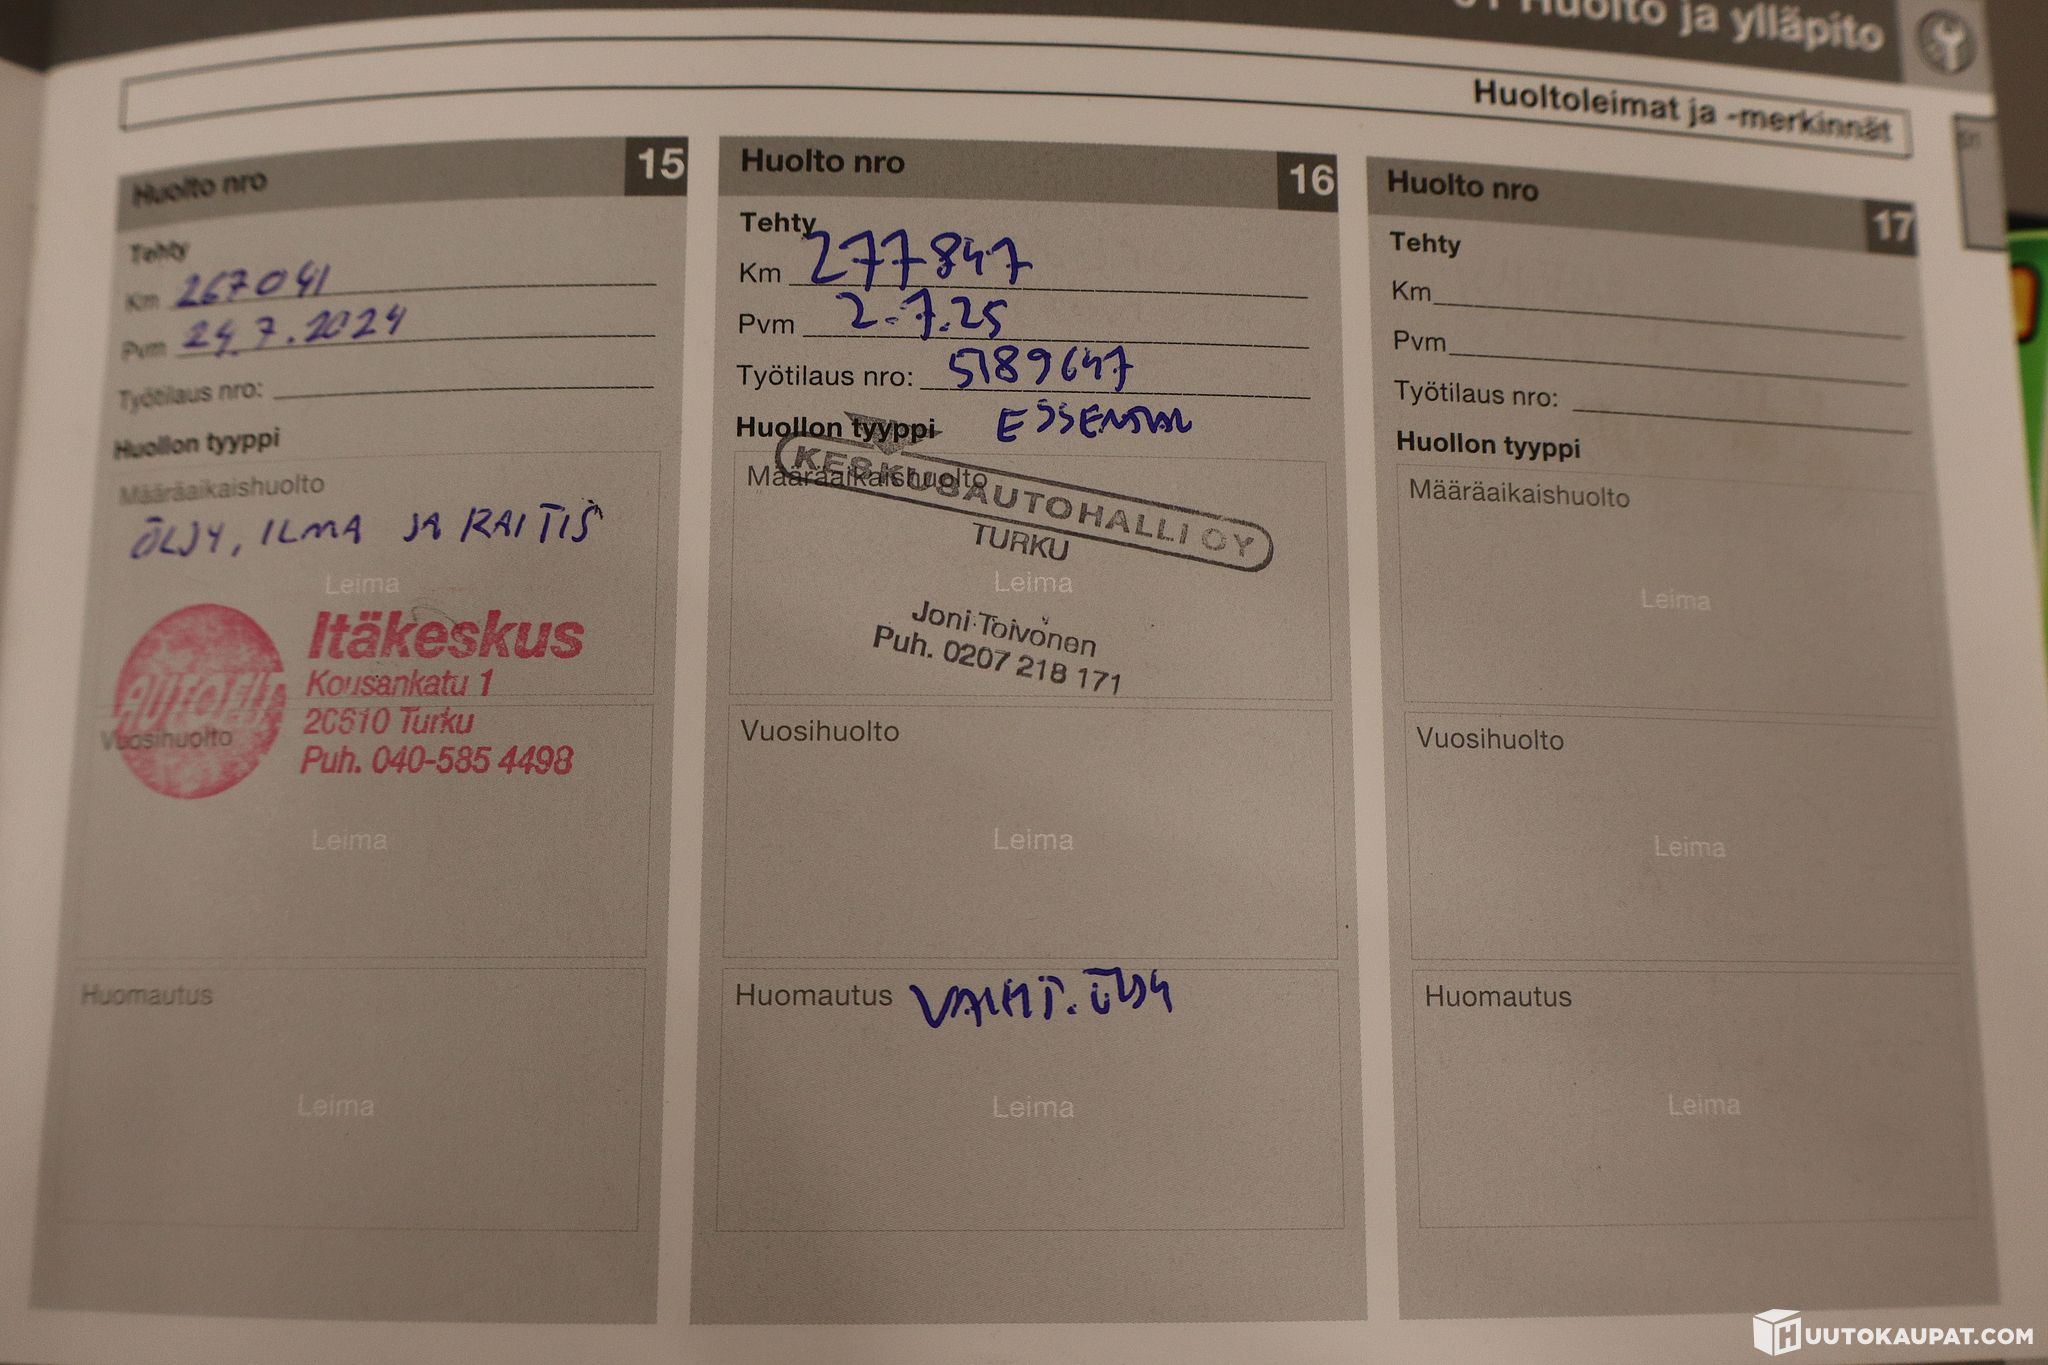 Huolto ja ylläpito
Huoltoleimat ja -merkinnät
Huolto nro 15
Tehty
Km 267041
Pvm 24.7.2024
Työtilaus nro:
Huollon tyyppi
Määräaikaishuolto
ÖLJY, ILMA JA RAITIS
Leima
AUTOFIT
Itäkeskus
Kousankatu 1
20610 Turku
Puh. 040-585 4498
Vuosihuolto
Leima
Huomautus
Leima
Huolto nro 16
Tehty
Km 277847
Pvm 2.7.25
Työtilaus nro: 5189647
Huollon tyyppi ESSENTIAL
Määräaikaishuolto
KESKUSAUTOHALLI OY
TURKU
Leima
Joni Toivonen
Puh. 0207 218 171
Vuosihuolto
Leima
Huomautus
Leima
Huolto nro 17
Tehty
Km
Pvm
Työtilaus nro:
Huollon tyyppi
Määräaikaishuolto
Leima
Vuosihuolto
Leima
Huomautus
Leima
HUUTOKAUPAT.COM